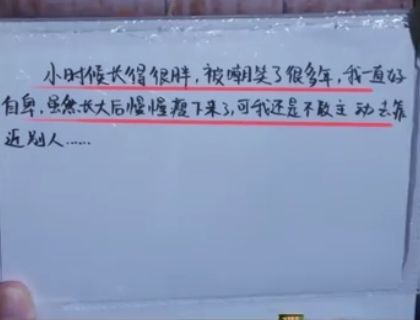 小时候长得很胖，被嘲笑了很多年，我一直好
自卑，虽然长大后慢慢瘦下来了，可我还是不敢主动去靠
近别人……